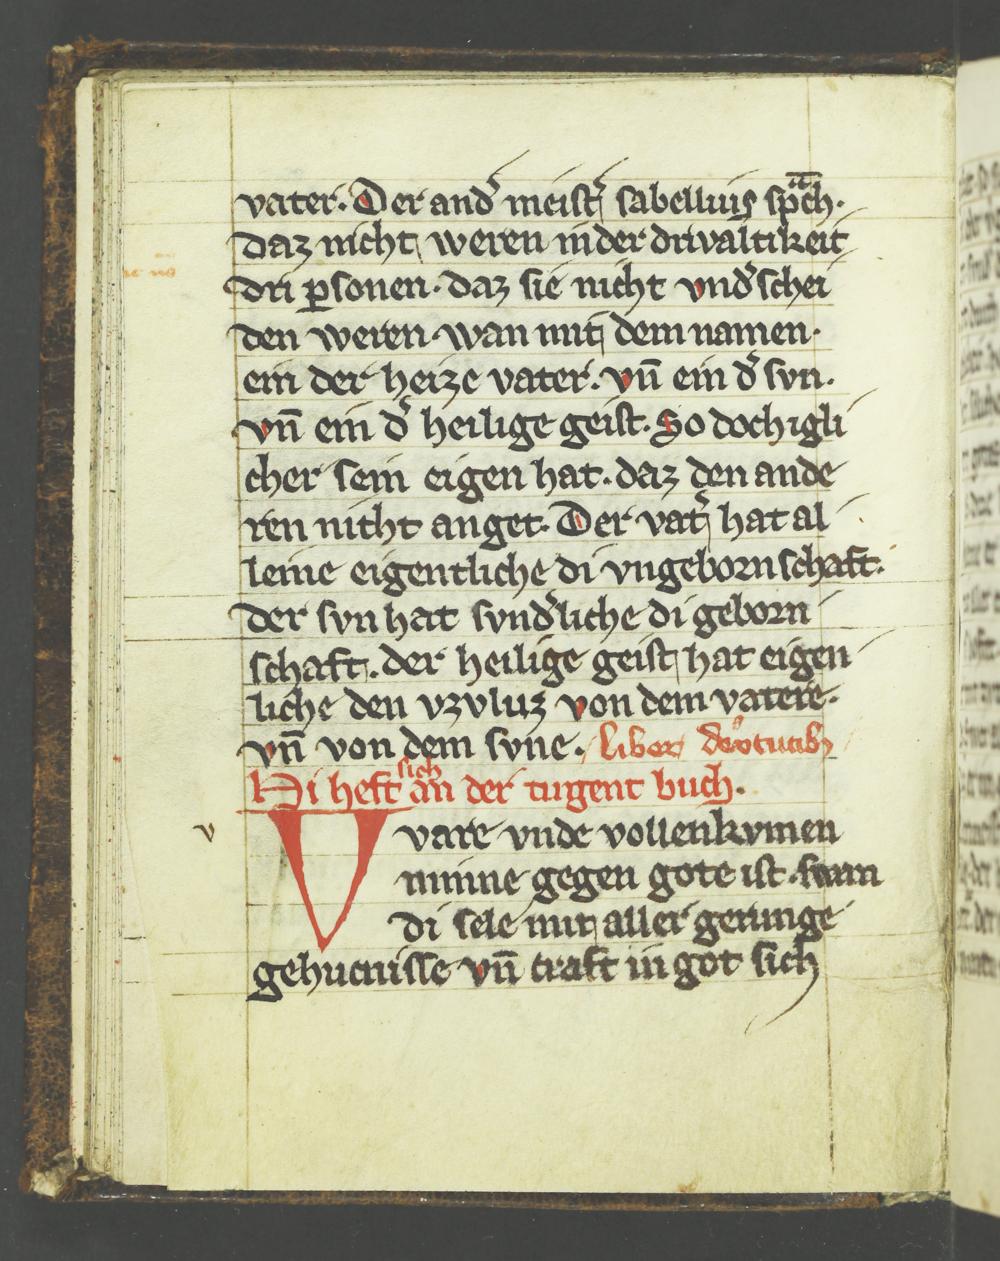 vater. Der andꝰ meistꝰ sabellius spͣch.
daz nicht weren in der drivaltikeit
dri ꝑsonen. daz sie nicht vndꝰschei
den weren. wan mit dem namen.
ein der heize vater. vn̄ ein dꝰ svn.
vn̄ ein dꝰ heilige geist. So doch igli
cher sein eigen hat. daz den ande
ren nicht anget. Der vatꝰ hat al
leine eigentliche di vngebornschaft.
der svn hat svndꝰliche di geborn
schaft. der heilige geist hat eigen
liche den vzvluz von dem vatere.
vn̄ von dem svne. liber de
Hi heft sich an der tugent buch.
v
Vvare vnde vollenkvmen
minne gegen gote ist. swan
di sele mit aller gerunge
gehucnisse vn̄ craft in got sich